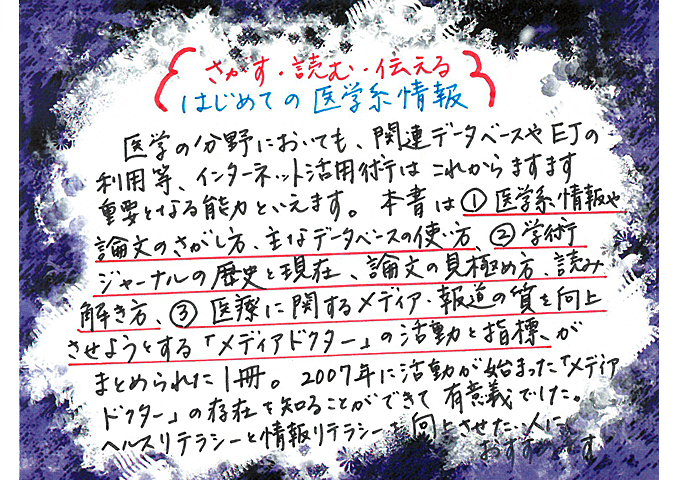 さがす・読む・伝える
はじめての医学系情報
医学の分野においても、関連データベースやEJの
利用等、インターネット活用術はこれからますます
重要となる能力といえます。本書は①医学系情報や
論文のさがし方、主なデータベースの使い方、②学術
ジャーナルの歴史と現在、論文の見極め方、読み
解き方、③医療に関するメディア・報道の質を向上
させようとする「メディアドクター」の活動と指標、が
まとめられた1冊。2007年に活動が始まった「メディア
ドクター」の存在を知ることができて有意義でした。
ヘルスリテラシーと情報リテラシーを向上させたい人に
おすすめです